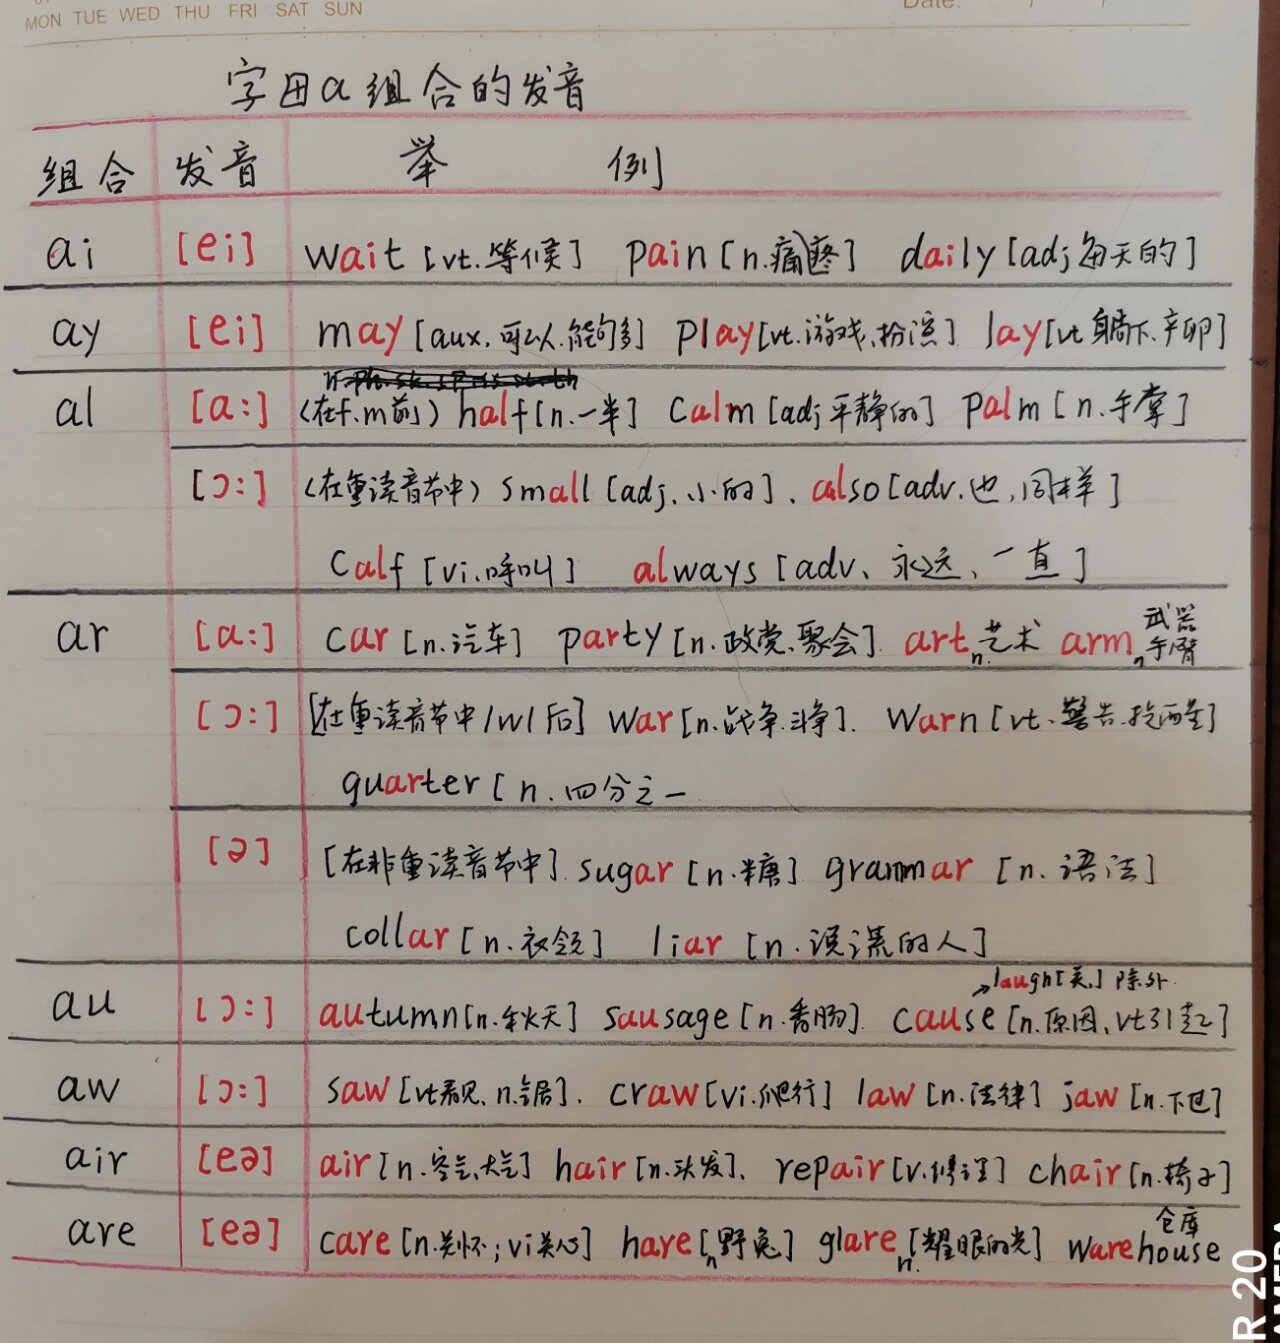 MON TUE WED THU FRI SAT SUN
Date: / /
字母a组合的发音
组合 发音 举 例
ai [ei] wait [vt.等候] pain [n.痛疼] daily [adj 每天的]
ay [ei] may [aux.可以.能够] play [vt.游戏.扮演] lay [vt 躺下.产卵]
al [a:] (在f.m前) half [n.一半] calm [adj 平静的] palm [n.手掌]
[ɔ:] (在重读音节中) small [adj.小的]. also [adv.也,同样]
calf [vi.呼叫] always [adv、永远、一直]
武器
ar [a:] car [n.汽车] party [n.政党.聚会] art n.艺术 arm n 手臂
[ɔ:] [在重读音节中/w/后] war [n.战争.斗争]. warn [vt.警告.提醒]
quarter [n.四分之一
[ə] [在非重读音节中]. sugar [n.糖] grammar [n.语法]
collar [n.衣领] liar [n.说谎的人]
laugh [美] 除外
au [ɔ:] autumn [n.秋天] sausage [n.香肠]. cause [n.原因、vt引起]
aw [ɔ:] saw [vt看见、n.锯]. craw [vi.爬行] law [n.法律] jaw [n.下巴]
air [eə] air [n.空气,大气] hair [n.头发]. repair [v.修理] chair [n.椅子]
仓库
are [eə] care [n.关怀;vi关心] hare [n 野兔] glare n.[耀眼的光] warehouse
R 20